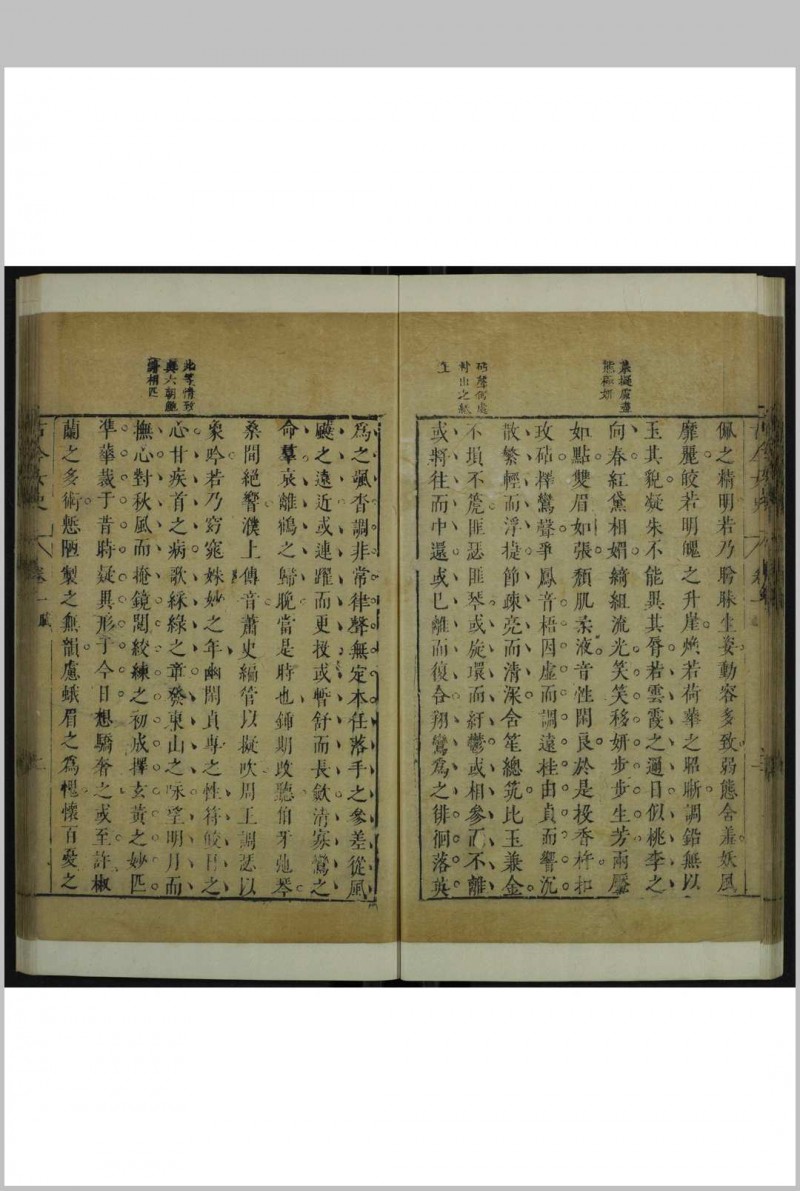 佩之精明若乃盻睞生姿動容多致弱態含羞妖風
靡麗皎若明魄之升崖煥若荷華之昭晰調鉛無以
玉其貌凝朱不能異其脣若雲霞之邇日似桃李之
向春紅黛相媚綺組流光笑笑移妍步步生芳兩靨
如點雙眉如張頹肌柔液音性閑良於是投香杵扣
玫砧擇鸞聲爭鳳音梧因虛而調遠桂由貞而響沉
散繁輕而浮捷節疎亮而清深含笙總筑比玉兼金
不塤不箎匪瑟匪琴或旋環而紆鬱或相參而不離
或將往而中還或已離而復合翔鸞為之徘徊落英
砧聲何處
為之颯沓調非常律聲無定本任落手之參差從風
飈之遠近或連躍而更投或暫舒而長歛清寡鸞之
命羣哀離鶴之歸晚當是時也鍾期改聽伯牙弛琴
桑間絕響濮上傳音蕭史編管以擬吹周王調瑟以
象吟若乃窈窕姝妙之年幽閒貞專之性符皎日之
心甘疾首之病歌綵綠之章發東山之咏望明月而
撫心對秋風而掩鏡閱絞練之初成擇玄黃之妙匹
準華裁于昔時疑異形于今日想驕奢之或至許椒
蘭之多術慙陋製之無韻慮蛾眉之為愧懷百憂之
此等情致
與六朝
相匹
古今女史 卷一賦